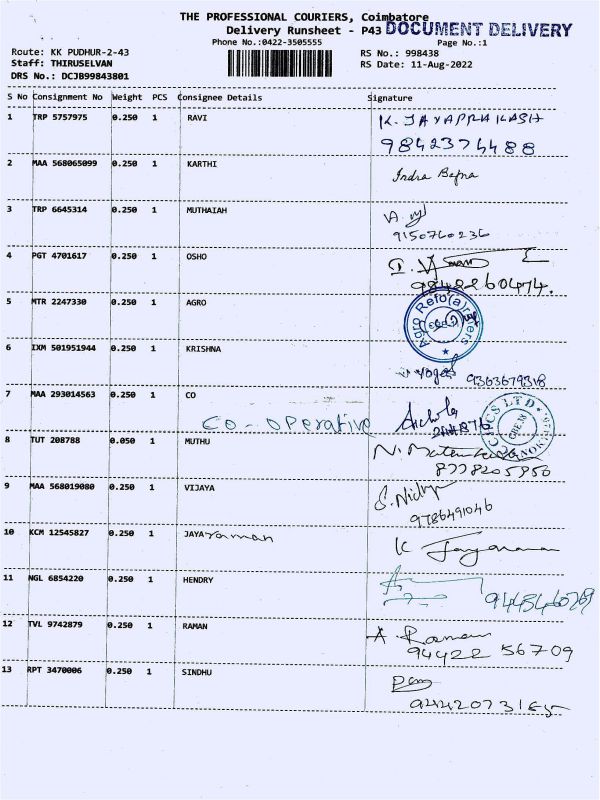 THE PROFESSIONAL COURIERS, Coimbatore
Delivery Runsheet - P43 DOCUMENT DELIVERY
Phone No.:0422-3505555 Page No.:1
Route: KK PUDHUR-2-43 RS No.: 998438
Staff: THIRUSELVAN RS Date: 11-Aug-2022
DRS No.: DCJB99843801
S No Consignment No Weight PCS Consignee Details Signature
1 TRP 5757975 0.250 1 RAVI K. JAYAPRAKASH
9842374488
2 MAA 568065099 0.250 1 KARTHI Indra Bafna
3 TRP 6645314 0.250 1 MUTHAIAH
9150760236
4 PGT 4701617 0.250 1 OSHO
9842260474.
5 MTR 2247330 0.250 1 AGRO
6 IXM 501951944 0.250 1 KRISHNA
yogesh 9363679318
7 MAA 293014563 0.250 1 CO
CO-OPERATIVE
8 TUT 208788 0.050 1 MUTHU
8778205950
9 MAA 568019080 0.250 1 VIJAYA S. Nidhya
9786491046
10 KCM 12545827 0.250 1 JAYAraman K Jayaraman
11 NGL 6854220 0.250 1 HENDRY
12 TVL 9742879 0.250 1 RAMAN A Raman
94422 56709
13 RPT 3470006 0.250 1 SINDHU